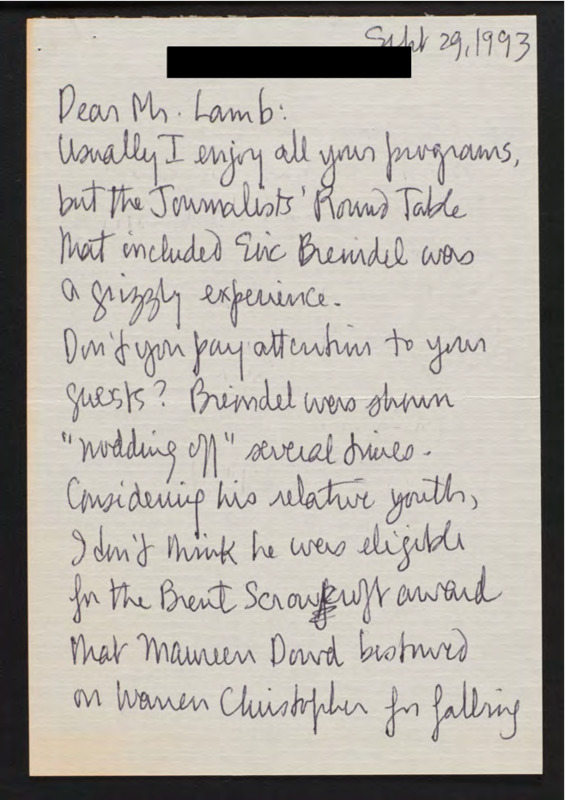 Sept 29, 1993
Dear Mr. Lamb:
Usually I enjoy all your programs,
but the Journalists' Round Table
that included Eric Breindel was
a grizzly experience.
Don't you pay attention to your
guests? Breindel was shown
"nodding off" several times.
Considering his relative youth,
I don't think he was eligible
for the Brent Scowcroft award
that Maureen Dowd bestowed
on Warren Christopher for falling